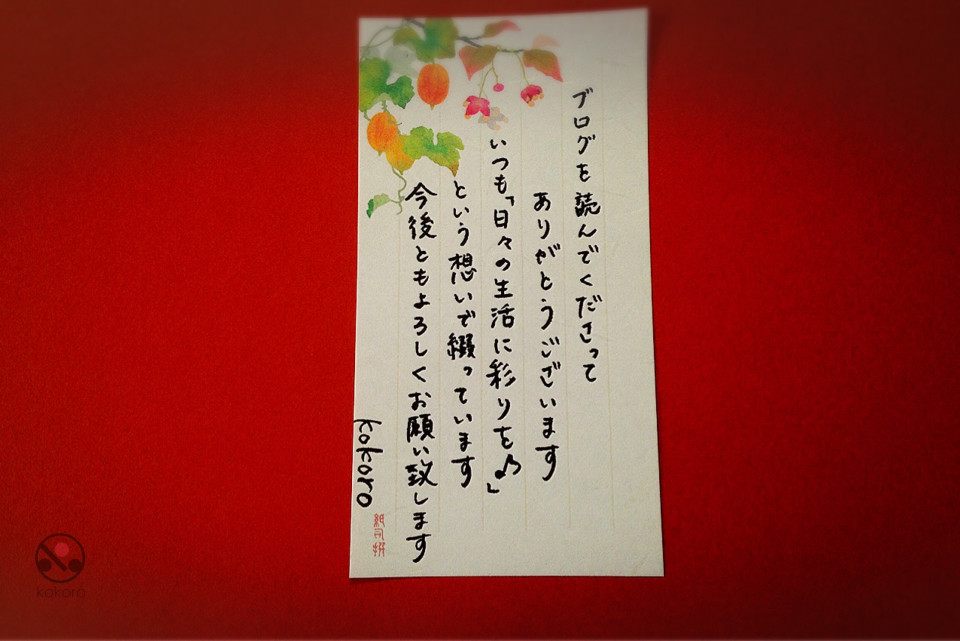 ブログを読んでくださって
ありがとうございます
いつも「日々の生活に彩りを♪」
という想いで綴っています
今後ともよろしくお願い致します
kokoro
kokoro